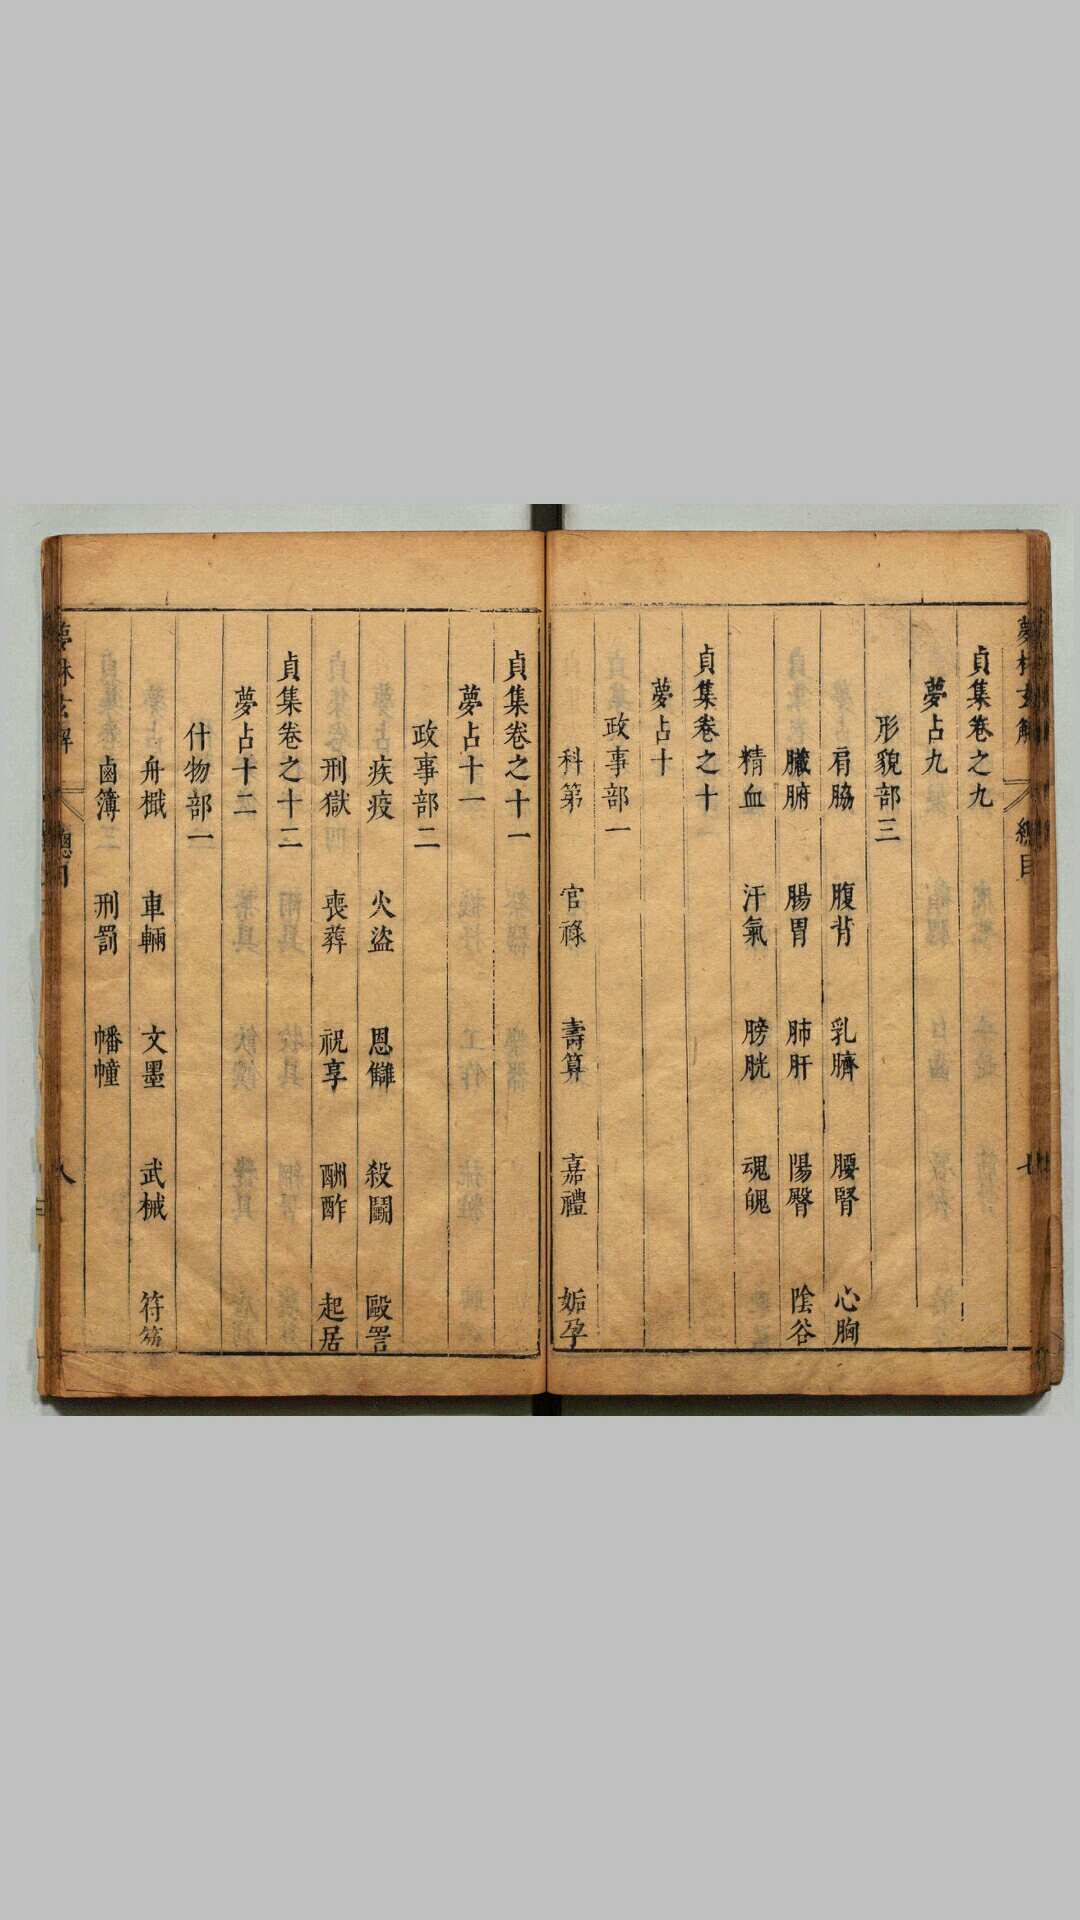 夢林玄解 總目 七
貞集卷之九
夢占九
形貌部三
肩脇 腹背 乳臍 腰腎 心胸
臟腑 腸胃 肺肝 陽臀 陰谷
精血 汗氣 膀胱 魂魄
貞集卷之十
夢占十
政事部一
科第 官祿 壽算 嘉禮 姤孕
貞集卷之十一
夢占十一
政事部二
疾疫 火盜 恩讎 殺鬭 毆詈
刑獄 喪葬 祝享 酬酢 起居
貞集卷之十二
夢占十二
什物部一
舟檝 車輛 文墨 武械 符
鹵簿 刑罰 幡幢
夢林玄解 總目 八